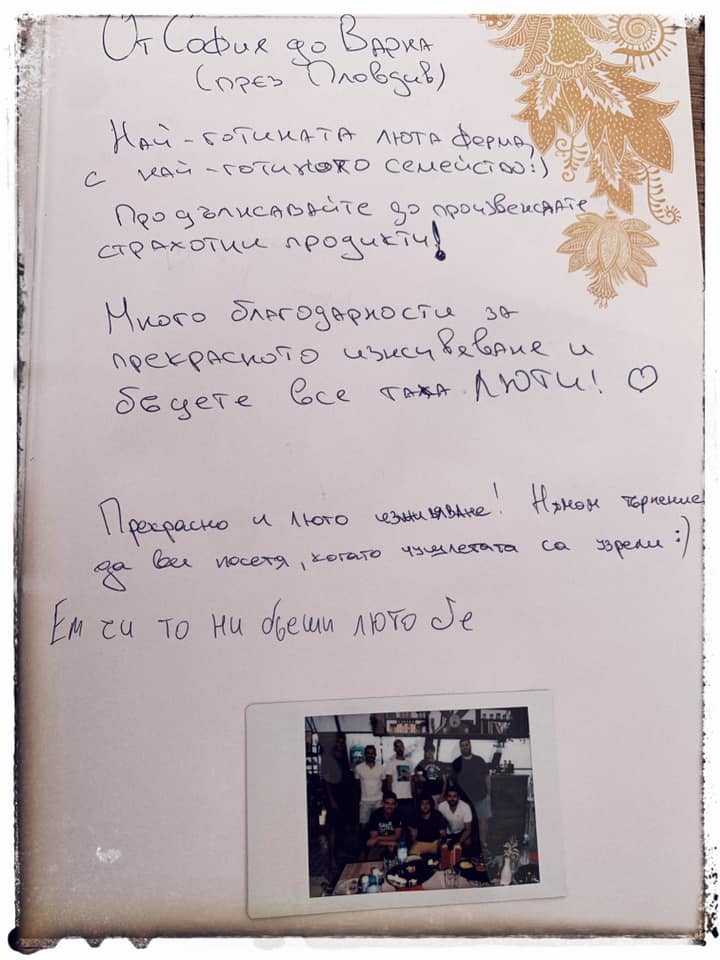 От София до Варна
(през Пловдив)
Най-готината люта ферма,
с най-готиното семейство:)
Продължавайте да произвеждате
страхотни продукти!
Много благодарности за
прекрасното изживяване и
бъдете все така ЛЮТИ! ♡
Прекрасно и люто изживяване! Нямам търпение
да ви посетя, когато чушлетата са узрели :)
Ем чи то ни беши люто бе